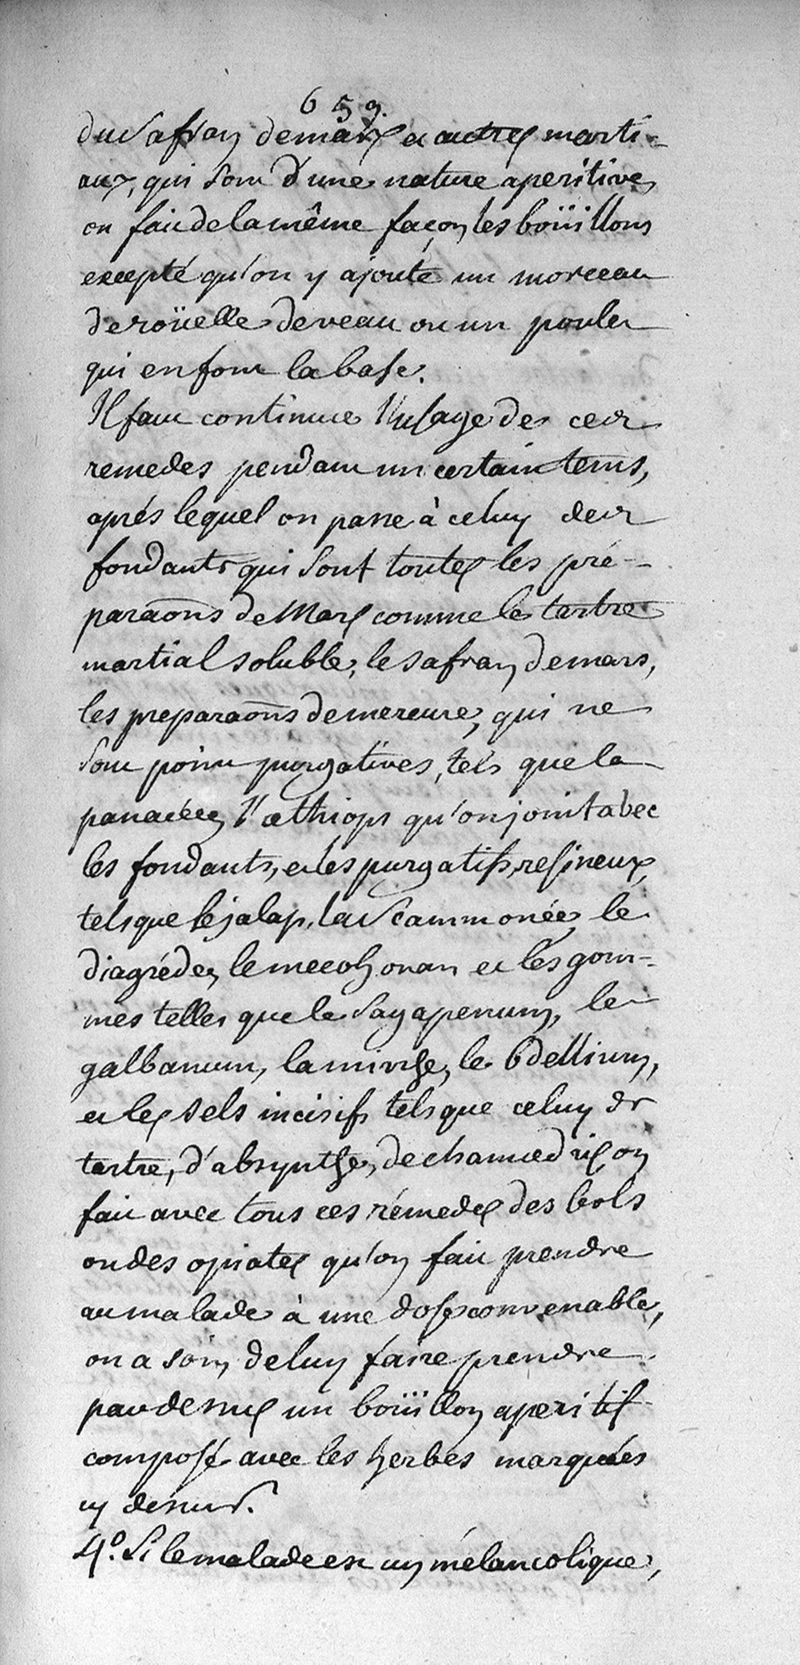 659.
du safran de mars et autres marti-
aux, qui sont d'une nature aperitive
on fait de la même façon les boüillons
excepté qu'on y ajoute un morceau
de roüelle de veau ou un poulet
qui en font la base.
Il faut continuer l'usage de ces
remedes pendant un certain tems,
aprés lequel on passe à celuy des
fondants qui sont toutes les pré-
paraõns de Mars comme le tartre
martial soluble, le safran de mars,
les preparaõns de mercure, qui ne
sont point purgatives, tels que la
panacée, l'æthiops qu'on joint avec
les fondants, et les purgatifs resineux,
tels que le jalap, la scammonée, le
diagréde, le mecohonan et les gom-
mes telles que le sagapenum, le
galbanum, la mirrhe, le bdellium,
et les sels incisifs tels que celuy de
tartre, d'absynthe, de chamœdris on
fait avec tous ces rémedes des bols
ou des opiates qu'on fait prendre
au malade à une dose convenable,
on a soin de luy faire prendre
par dessus un boüillon aperitif
composé avec les herbes marquées
cy dessus.
4.º Si le malade est un mélancolique,